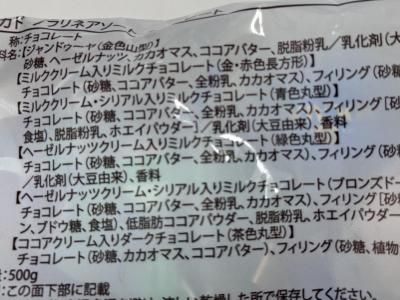 カド プラリネアソート
称:チョコレート
料名:【ジャンドゥーヤ(金色山型)】
砂糖、ヘーゼルナッツ、カカオマス、ココアバター、脱脂粉乳/乳化剤(大
【ミルククリーム入りミルクチョコレート(金・赤色長方形)】
チョコレート(砂糖、ココアバター、全粉乳、カカオマス)、フィリング(砂糖
【ミルククリーム・シリアル入りミルクチョコレート(青色丸型)】
チョコレート(砂糖、ココアバター、全粉乳、カカオマス)、フィリング[砂
食塩)、脱脂粉乳、ホエイパウダー]/乳化剤(大豆由来)、香料
【ヘーゼルナッツクリーム入りミルクチョコレート(緑色丸型)】
チョコレート(砂糖、ココアバター、全粉乳、カカオマス)、フィリング(砂
/乳化剤(大豆由来)、香料
【ヘーゼルナッツクリーム・シリアル入りミルクチョコレート(ブロンズド
チョコレート(砂糖、ココアバター、全粉乳、カカオマス)、フィリング[砂糖
ン、ブドウ糖、食塩)、低脂肪ココアパウダー、脱脂粉乳、ホエイパウダー
【ココアクリーム入りダークチョコレート(茶色丸型)】
チョコレート(砂糖、カカオマス、ココアバター)、フィリング(砂糖、植物
量:500g
:この面下部に記載
乾燥した所で保存してください。